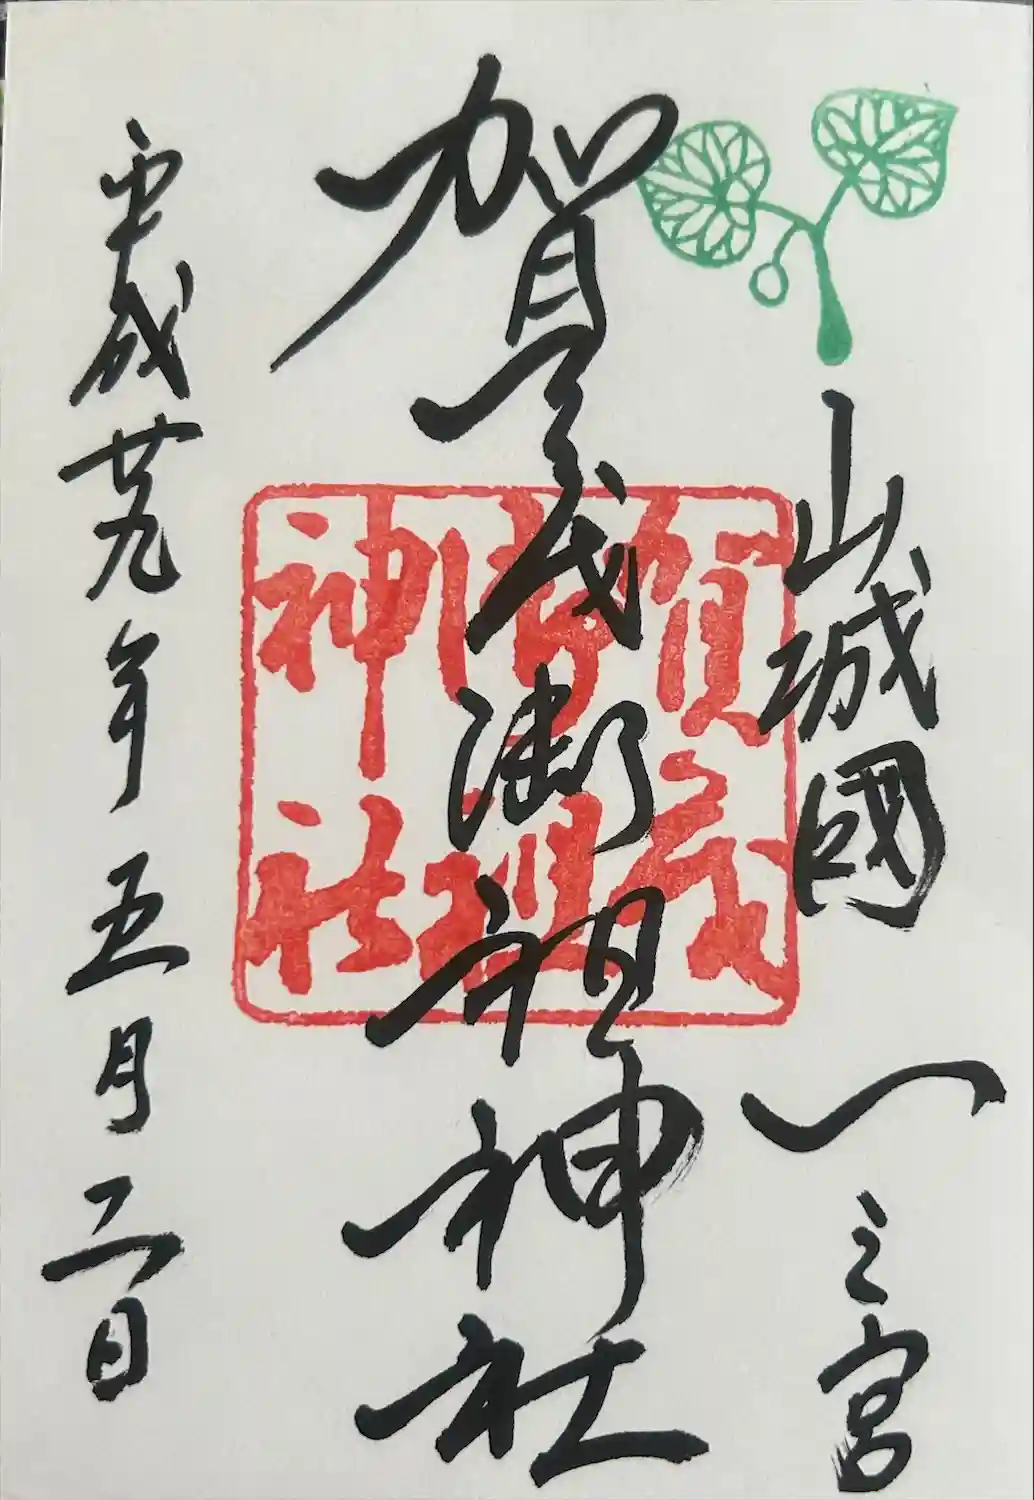 山城國一之宮
賀茂御祖神社
平成廿九年五月三日
賀茂
御祖
神社